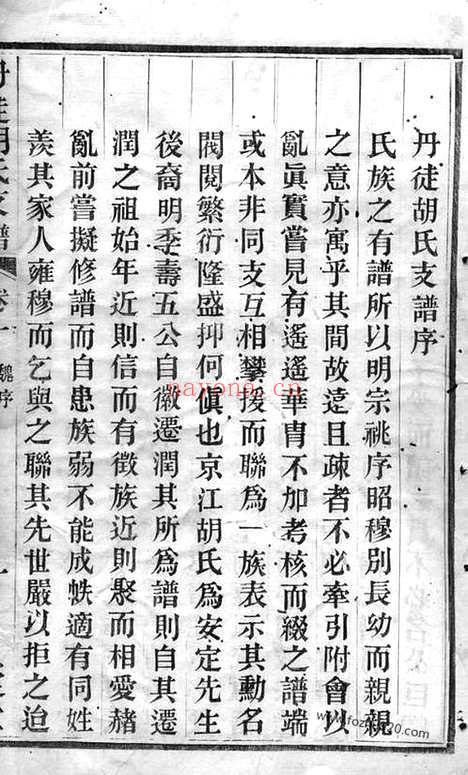 丹徒胡氏支譜序
氏族之有譜所以明宗祧序昭穆別長幼而親親
之意亦寓乎其間故遠且疎者不必牽引附會以
亂眞實嘗見有遙遙華胄不加考核而綴之譜端
或本非同支互相攀援而聯爲一族表示其勳名
閥閱繁衍隆盛抑何傎也京江胡氏爲安定先生
後裔明季壽五公自徽遷潤其所爲譜則自其遷
潤之祖始年近則信而有徵族近則聚而相愛赭
亂前嘗擬修譜而自患族弱不能成帙適有同姓
羨其家人雍穆而乞與之聯其先世嚴以拒之迨
丹徒胡氏支譜
卷一
魏序
nayona.cn
www.fozhu920.com